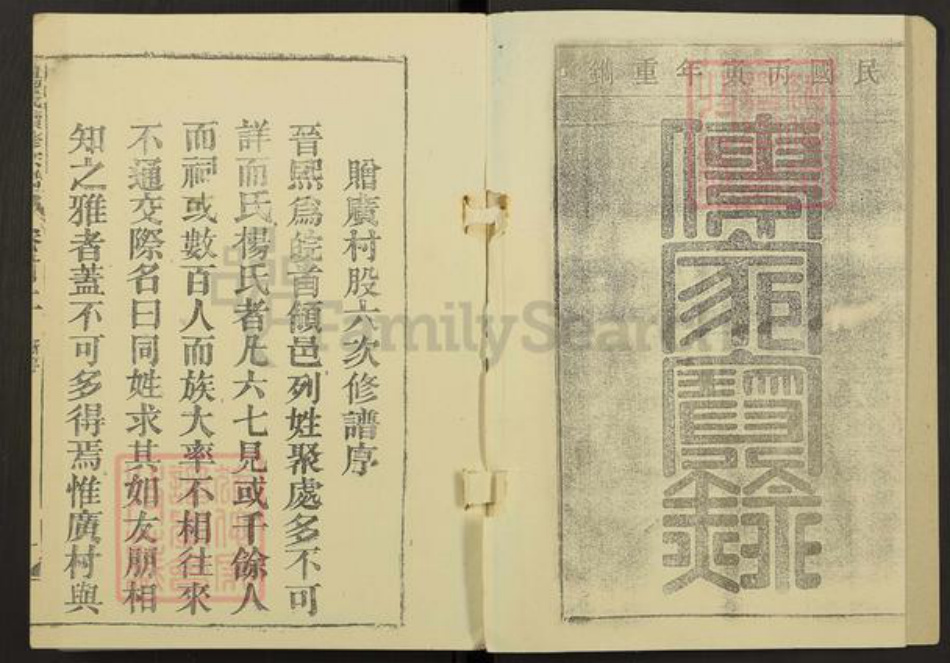 民國丙寅年重鐫
傳家寶籙
贈廣村股六次修譜序
晉熙爲皖首領邑列姓聚處多不可
詳而氏楊氏者凡六七見或千餘人
而祠或數百人而族大率不相往來
不通交際名曰同姓求其如友朋相
知之雅者蓋不可多得焉惟廣村與
FamilySearch